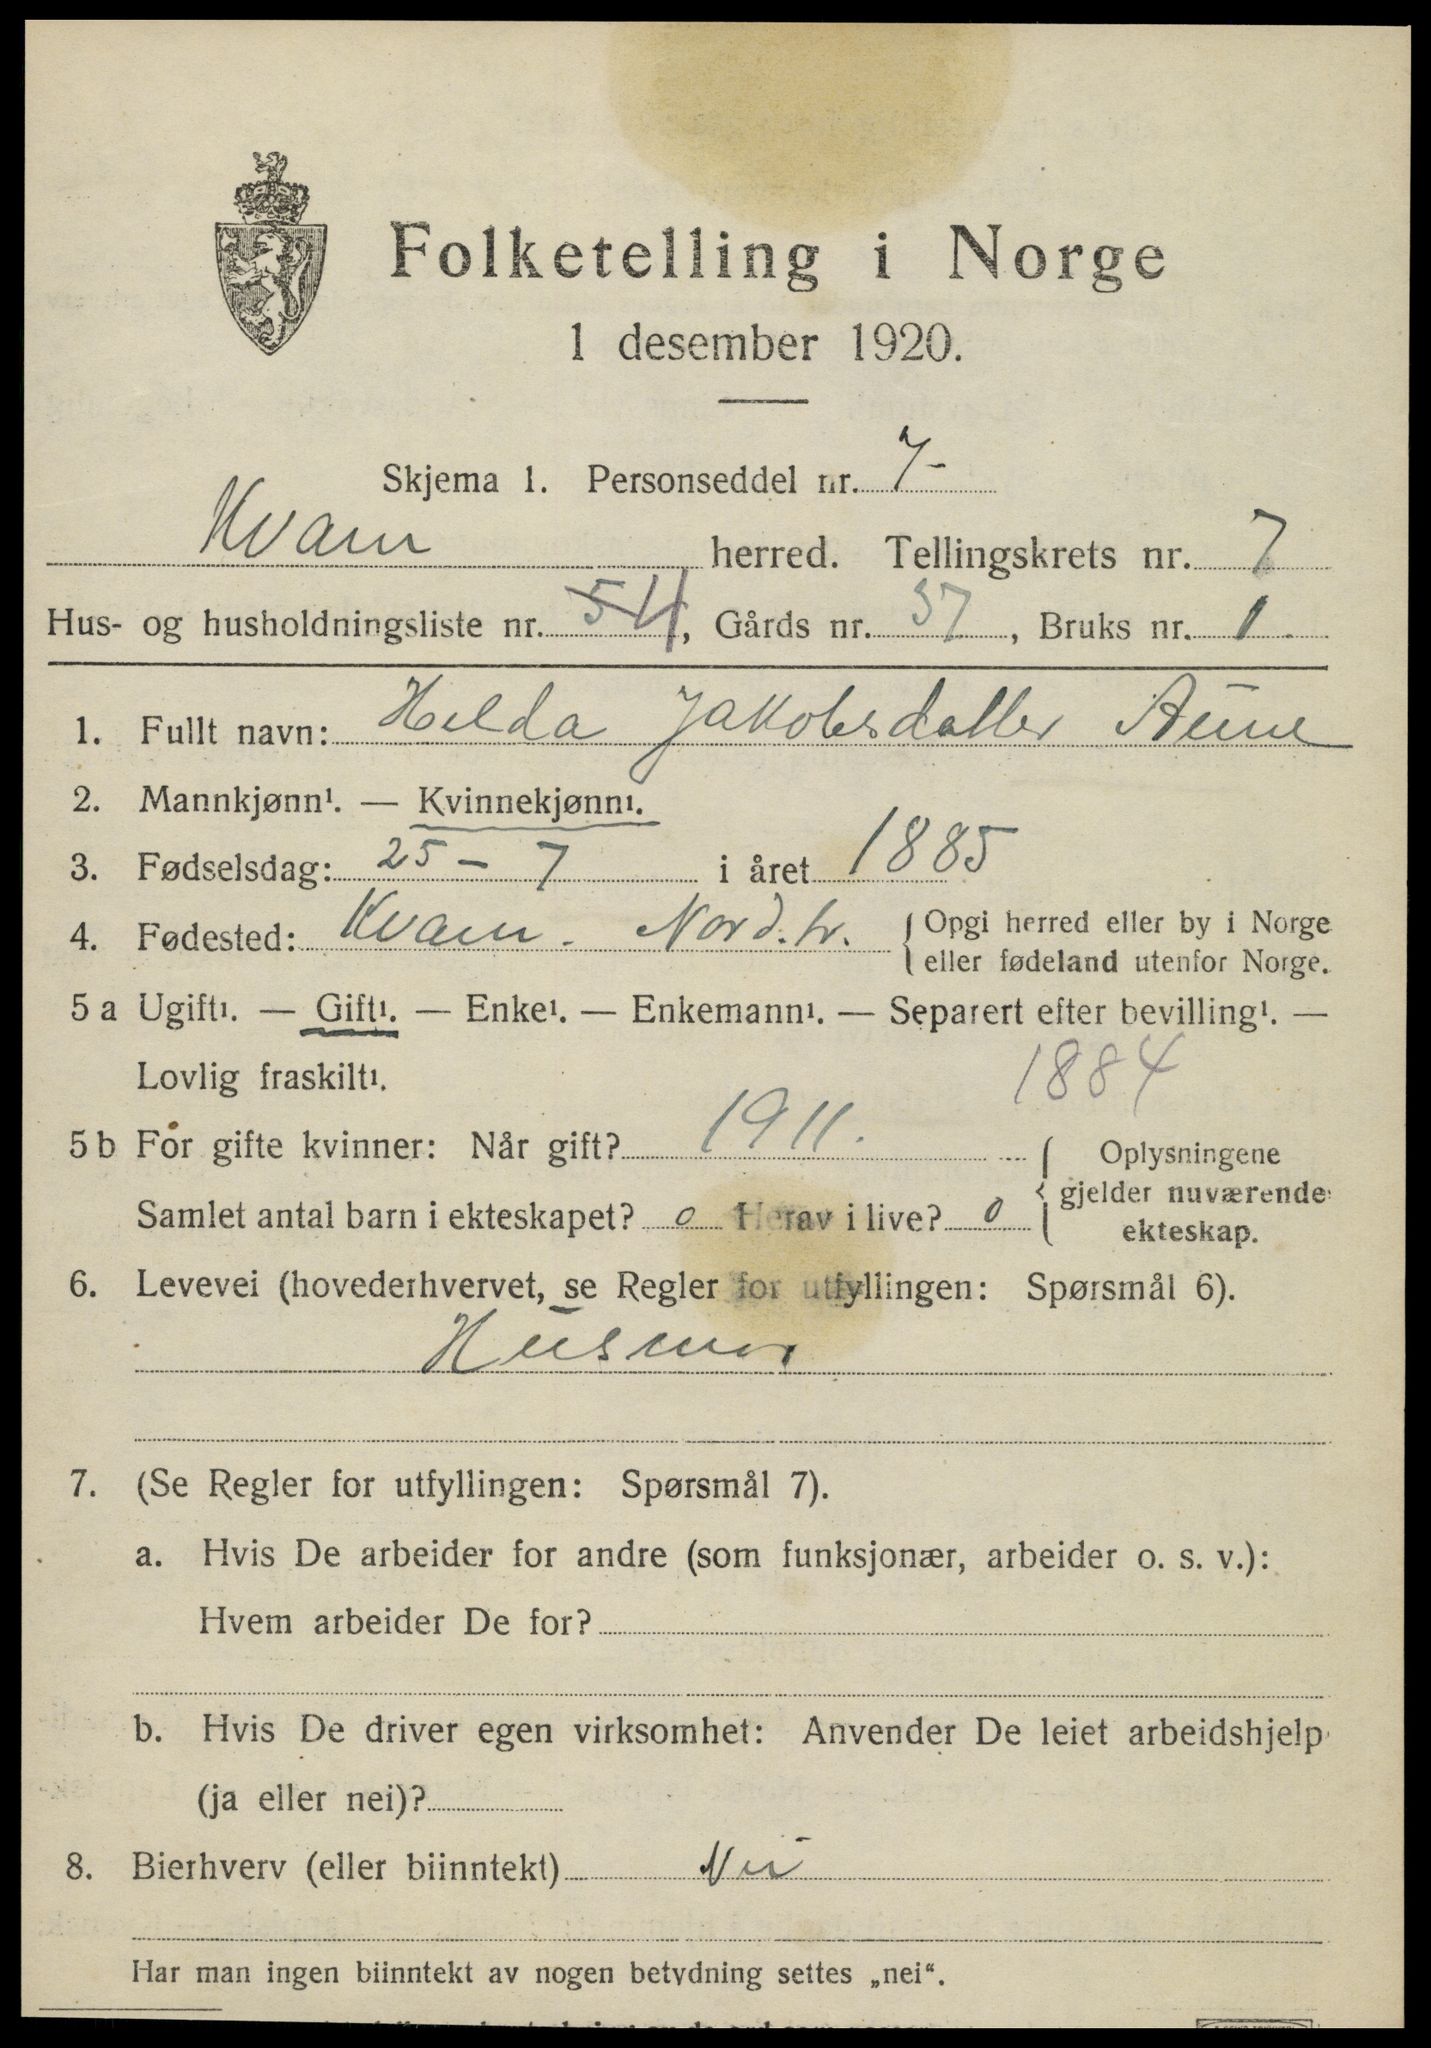 Folketelling i Norge
1 desember 1920.
Skjema 1. Personseddel nr. 7-
Kvam herred. Tellingskrets nr. 7
Hus- og husholdningsliste nr. 54, Gårds nr. 37, Bruks nr. 1.
1. Fullt navn: Helda Jakobsdatter Aune
2. Mannkjønn¹. — Kvinnekjønn¹.
3. Fødselsdag: 25 - 7 i året 1885
4. Fødested: Kvam. Nord.tr. { Opgi herred eller by i Norge
eller fødeland utenfor Norge.
5 a Ugift¹. — Gift¹. — Enke¹. — Enkemann¹. — Separert efter bevilling¹. —
Lovlig fraskilt¹.
1884
5 b For gifte kvinner: Når gift? 1911. { Oplysningene
gjelder nuværende
ekteskap.
Samlet antal barn i ekteskapet? 0 Herav i live? 0
6. Levevei (hovederhvervet, se Regler for utfyllingen: Spørsmål 6).
Husmor
7. (Se Regler for utfyllingen: Spørsmål 7).
a. Hvis De arbeider for andre (som funksjonær, arbeider o. s. v.):
Hvem arbeider De for?
b. Hvis De driver egen virksomhet: Anvender De leiet arbeidshjelp
(ja eller nei)?
8. Bierhverv (eller biinntekt) Nei
Har man ingen biinntekt av nogen betydning settes „nei“.